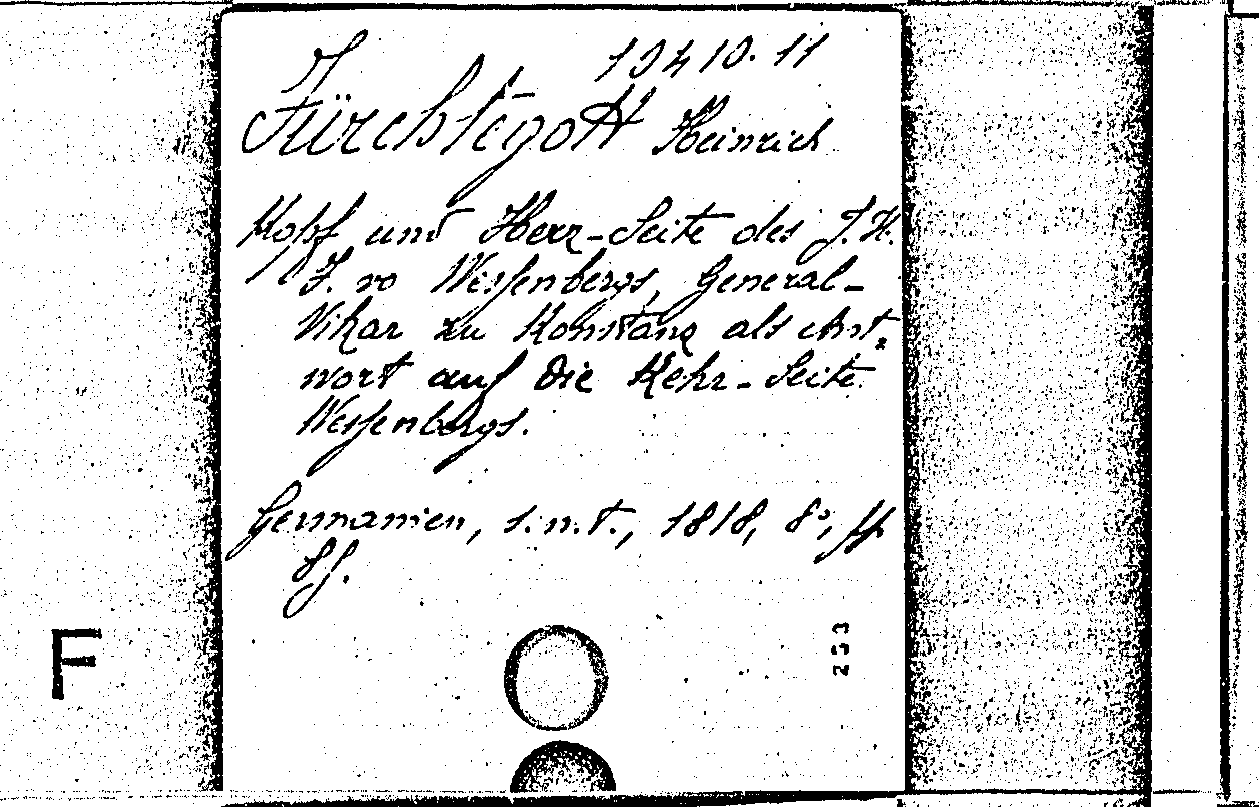 19410.11
Fürchtegott Heinrich
Kopf und Herz-Seite des J. H.
F. v. Wessenbergs, General-
Vikar zu Konstanz als Ant-
wort auf die Kehr-Seite
Wessenbergs.
Germanien, s.n.t., 1818, 8°,
8f.
253
F